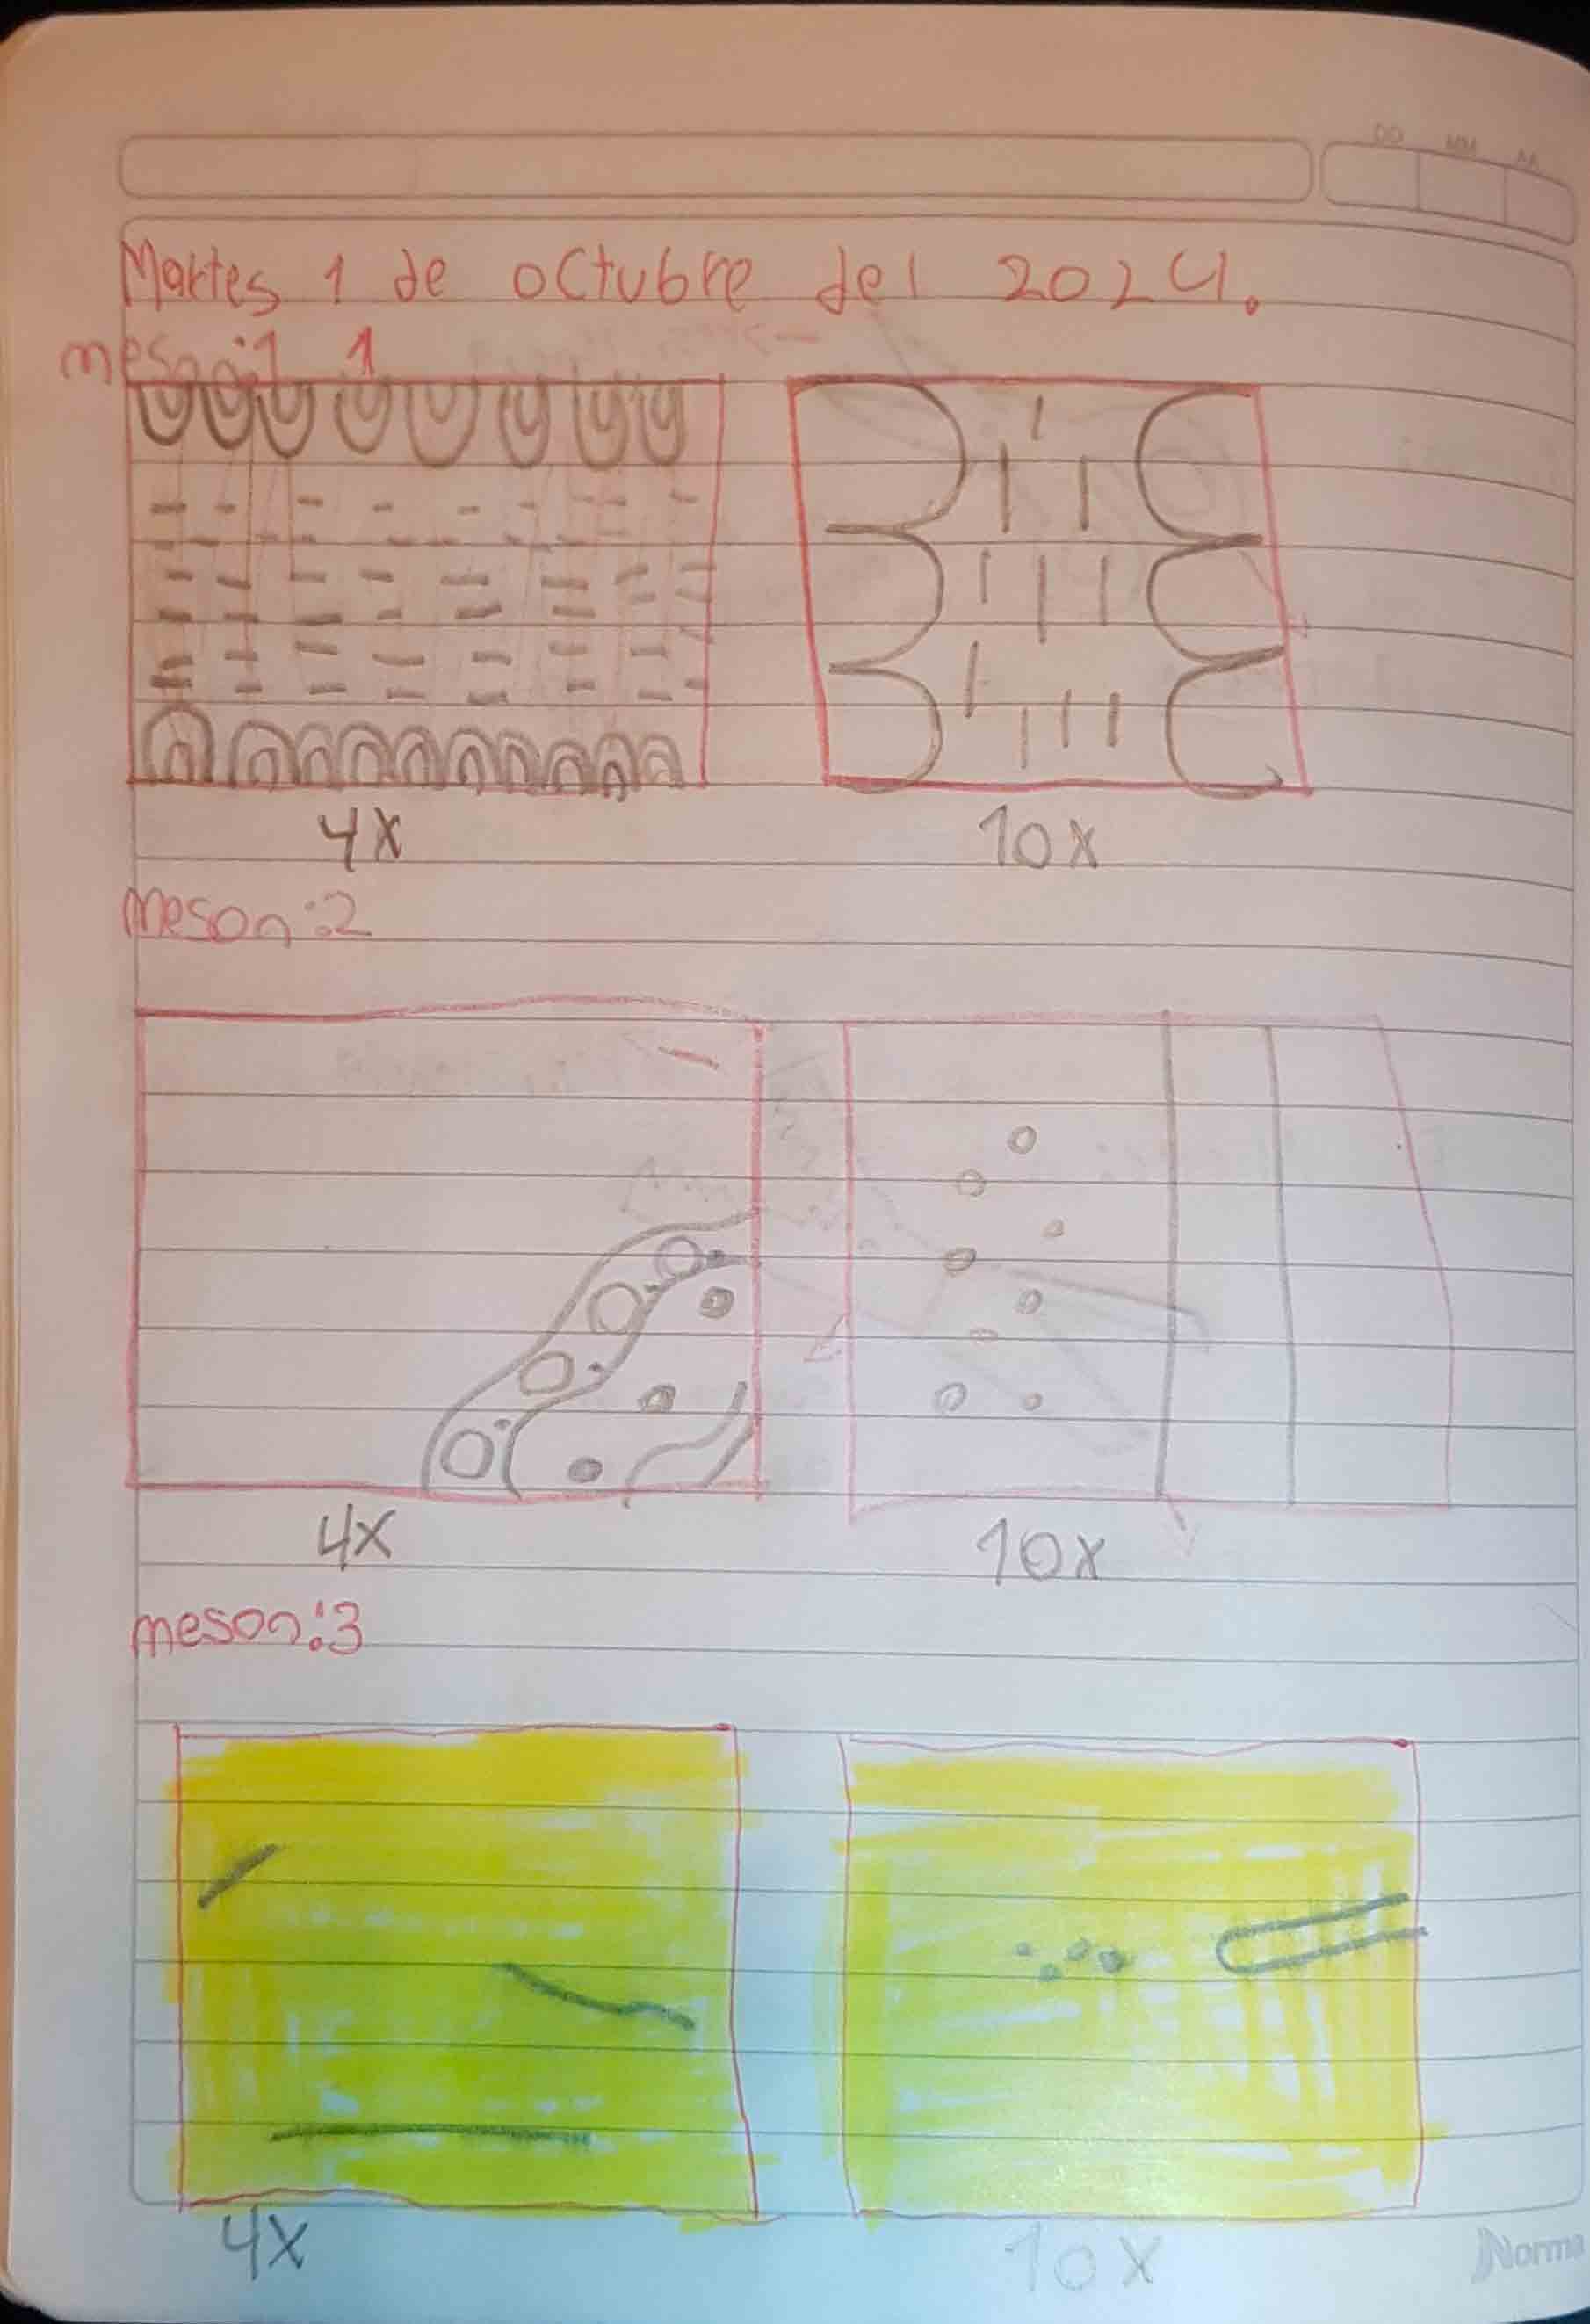 DD MM AA
Martes 1 de octubre del 2024.
meson:1 1
4x 10x
meson:2
4x 10x
meson:3
4x 10x
Norma